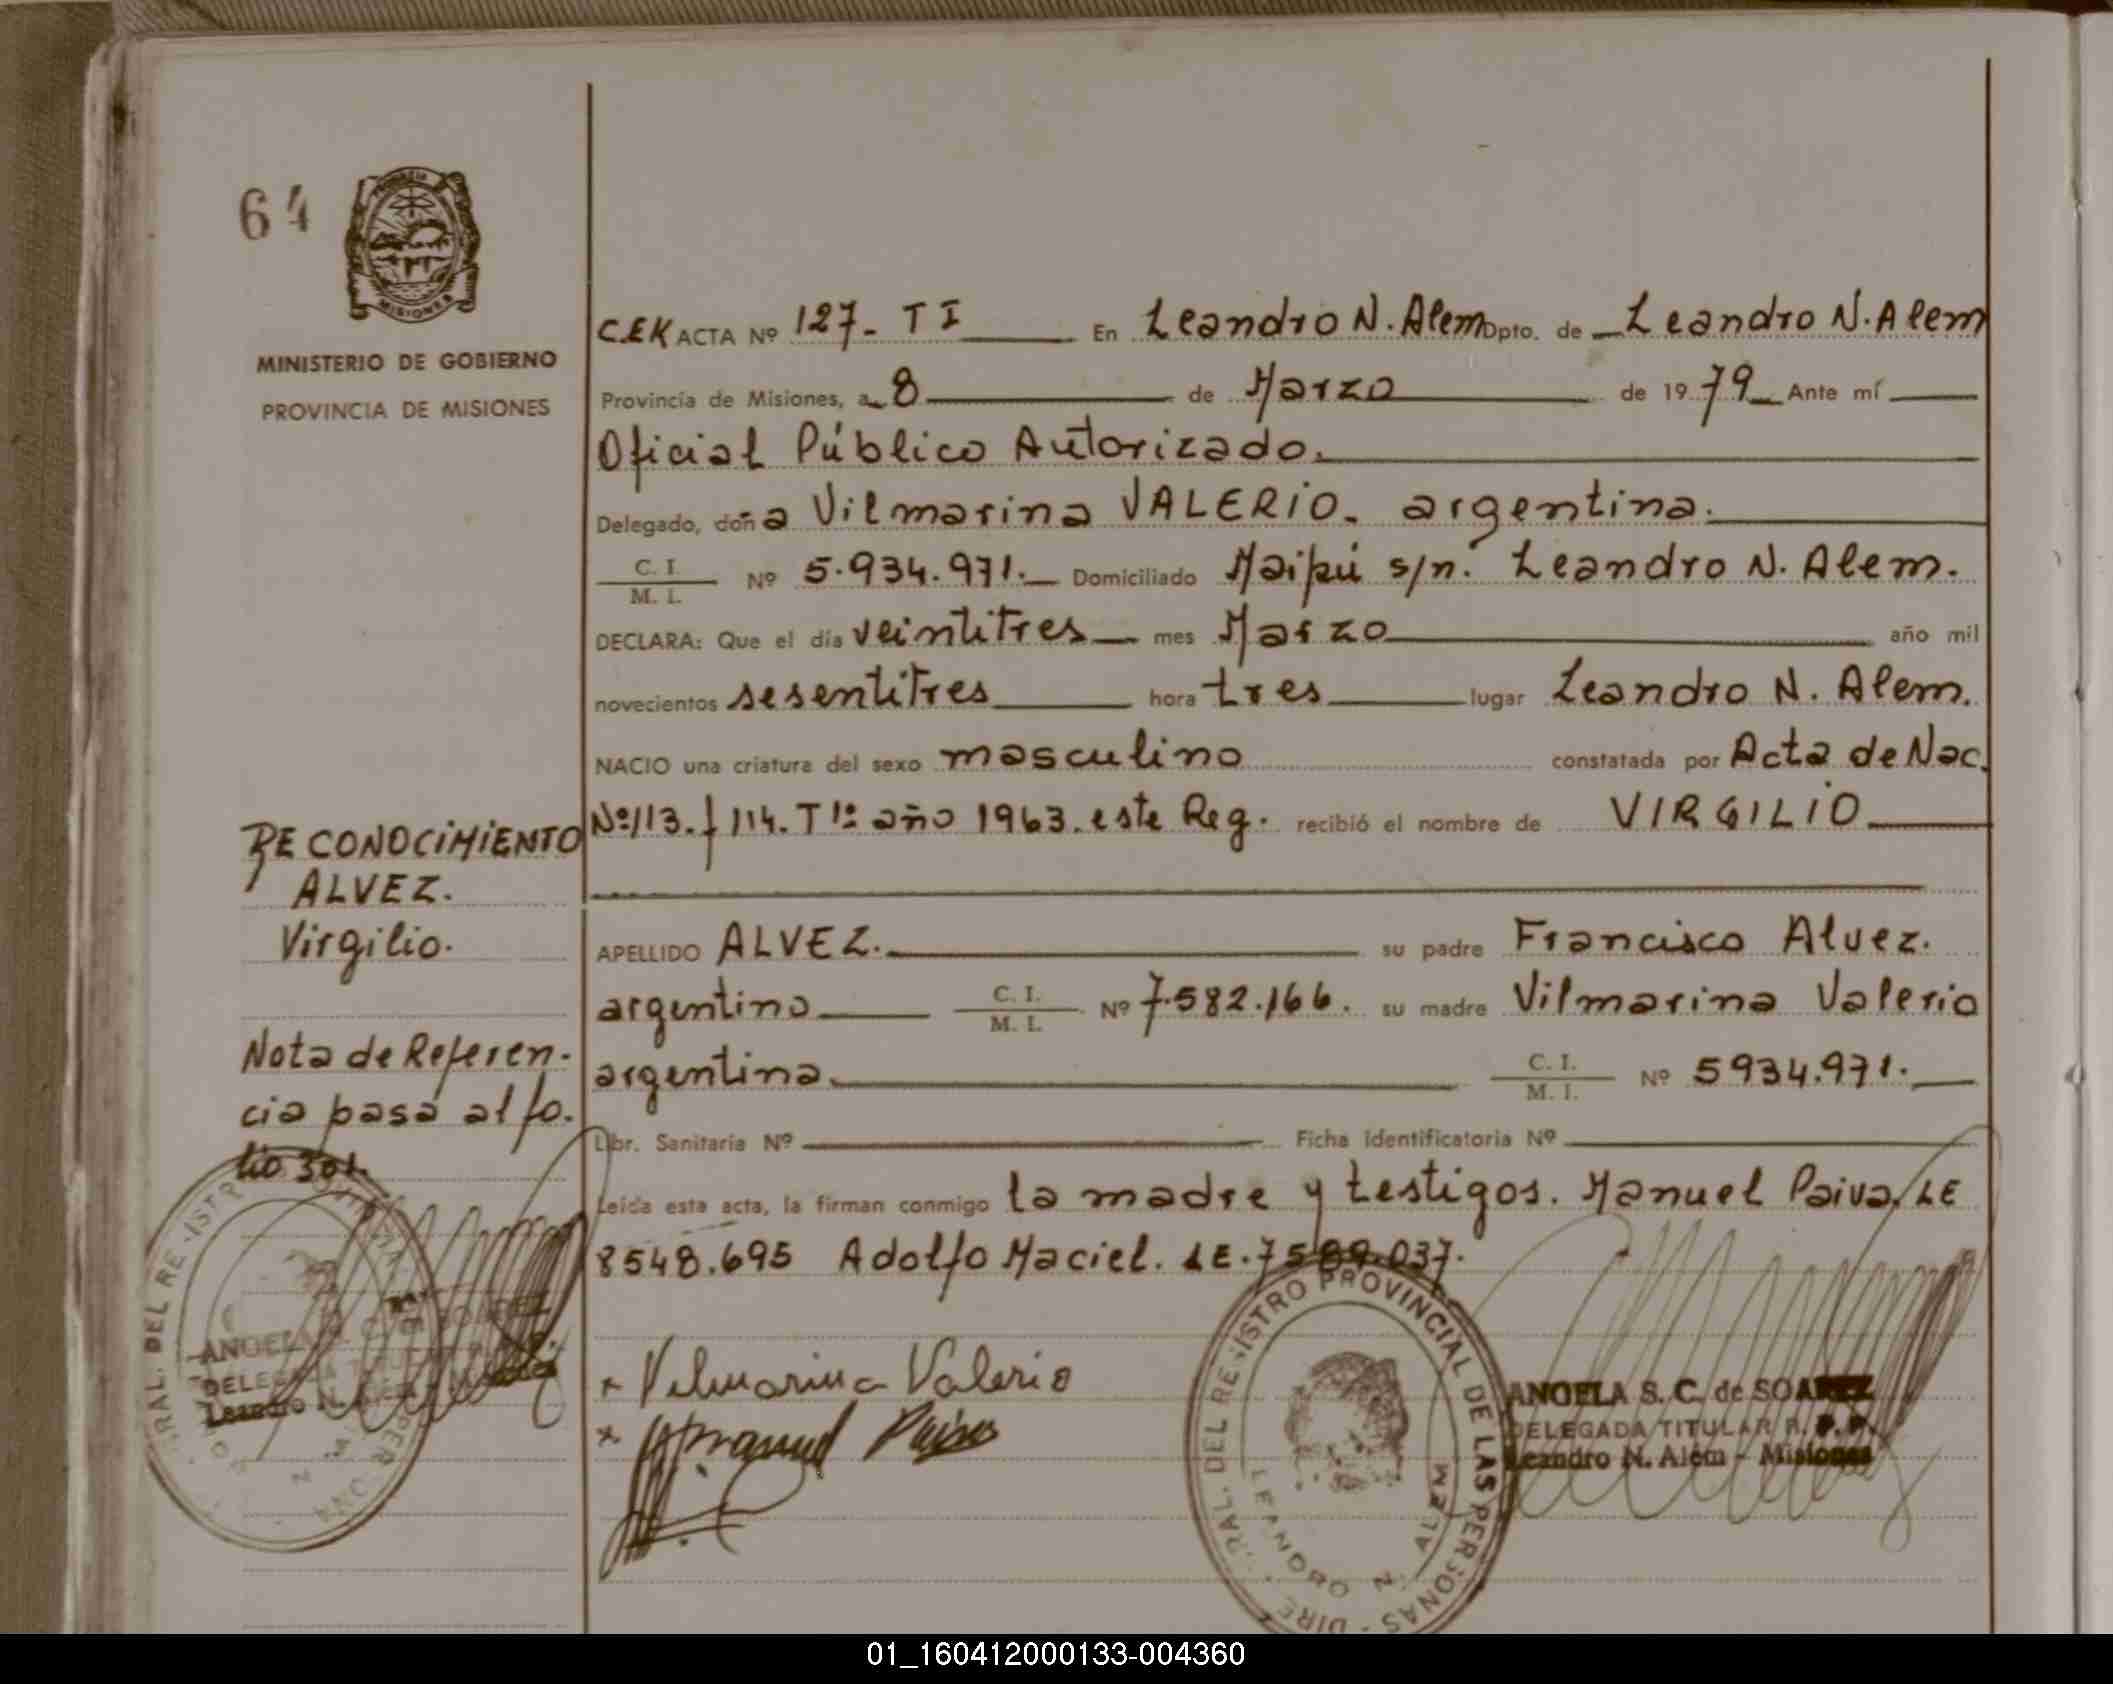 64
PROVINCIA
MISIONES
MINISTERIO DE GOBIERNO
PROVINCIA DE MISIONES
C.E.K ACTA Nº 127- T I En Leandro N. Alem Dpto. de Leandro N. Alem
Provincia de Misiones, a 8 de Marzo de 1979 Ante mí
Oficial Público Autorizado.
Delegado, doña Vilmarina VALERIO. argentina.
C. I.
M. I. Nº 5.934.971. Domiciliado Maipú s/n. Leandro N. Alem.
DECLARA: Que el día veintitres mes Marzo año mil
novecientos sesentitres hora tres lugar Leandro N. Alem.
NACIO una criatura del sexo masculino constatada por Acta de Nac.
Nº 113. f 114. T 1º año 1963. este Reg. recibió el nombre de VIRGILIO
RECONOCIMIENTO
ALVEZ.
Virgilio.
APELLIDO ALVEZ. su padre Francisco Alvez.
argentino C. I. M. I. Nº 7.582.166. su madre Vilmarina Valerio
argentina. C. I. M. I. Nº 5934.971.
Nota de Referen-
cia pasa al fo-
lio 301.
Libr. Sanitaria Nº Ficha identificatoria Nº
Leída esta acta, la firman conmigo la madre y testigos. Manuel Paiva. LE
8548.695 Adolfo Maciel. LE. 7589.037.
x Velmarina Valerio
x Manuel Paiva
RAL. DEL REGISTRO PROVINCIAL DE LAS PERSONAS - DIRE
LEANDRO N. ALEM
ANGELA S. C. de SOAREZ
DELEGADA TITULAR R. P. P.
Leandro N. Alem - Misiones
RAL. DEL REGISTRO
ANGELA S. C. de SOAREZ
DELEGADA TITULAR
Leandro N. Alem - Misiones
01_160412000133-004360